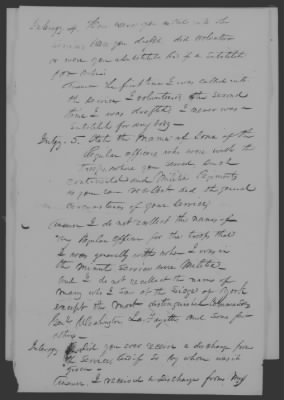 Interogy. 4. How were you called into the
service were you drafted did volunteer
or were you a substitute & if a substitute
for whom
Answer The first time I was called into
the service I volunteered the second
time I was drafted I never was a
substitute for any body
Interogy. 5. State the Names of some of the
Regular officers who were with the
troops where you served such
continental and Militia Regiments
as you can recollect and the general
circumstances of your services
Answer I do not recollect the names of
the Regular officers for the troops that
I was generally with when I was in
the minute service were Militia
and I do not recollect the names of
many who I saw at the Siege at York
except the most distinguished
Genl Washington La Fayette and some few
others
Interogy 6 Did you ever receive a discharge from
the service & if so by whom was it
given
Answer I received a discharge from My